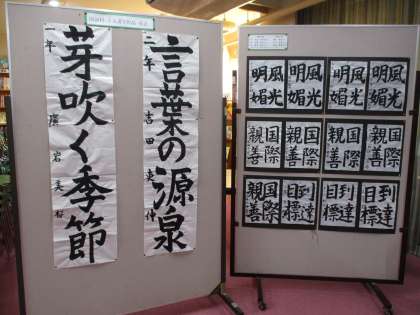 言葉の源泉
二年 吉田
芽吹く季節
一年
風光明媚
風光明媚
風光明媚
風光明媚
国際親善
国際親善
国際親善
国際親善
国際親善
到達目標
到達目標
到達目標